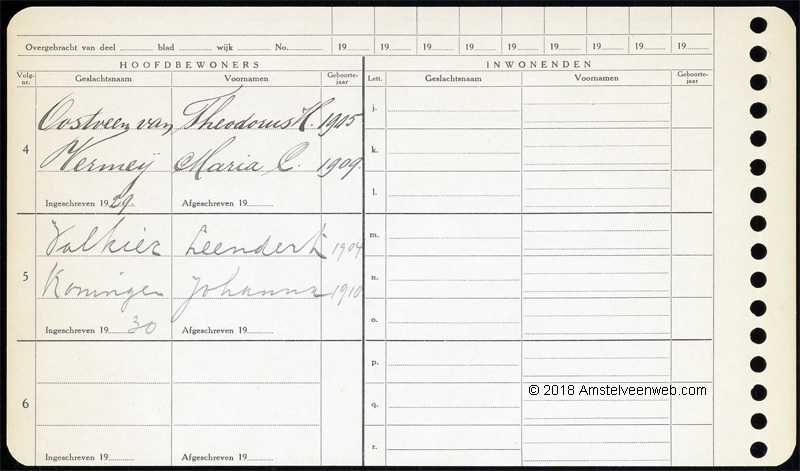 Overgebracht van deel ............ blad ............ wijk ............ No............. 19...... 19...... 19...... 19...... 19...... 19...... 19...... 19...... 19......
HOOFDBEWONERS INWONENDEN
Volg-nr. Geslachtsnaam Voornamen Geboorte-jaar Lett. Geslachtsnaam Voornamen Geboorte-jaar
j.
Oostveen van Theodorus H. 1905
4 k.
Vermeij Maria C. 1909.
l.
Ingeschreven 1929. Afgeschreven 19......
m.
Valkier Leendert 1904
5 n.
Koningen Johanna 1910
o.
Ingeschreven 19 30 Afgeschreven 19......
p.
© 2018 Amstelveenweb.com
6 q.
r.
Ingeschreven 19...... Afgeschreven 19......